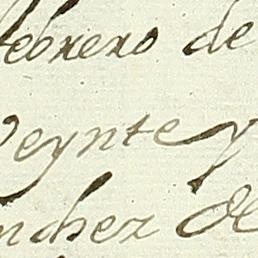 febrero de
Veynte y
nchez de